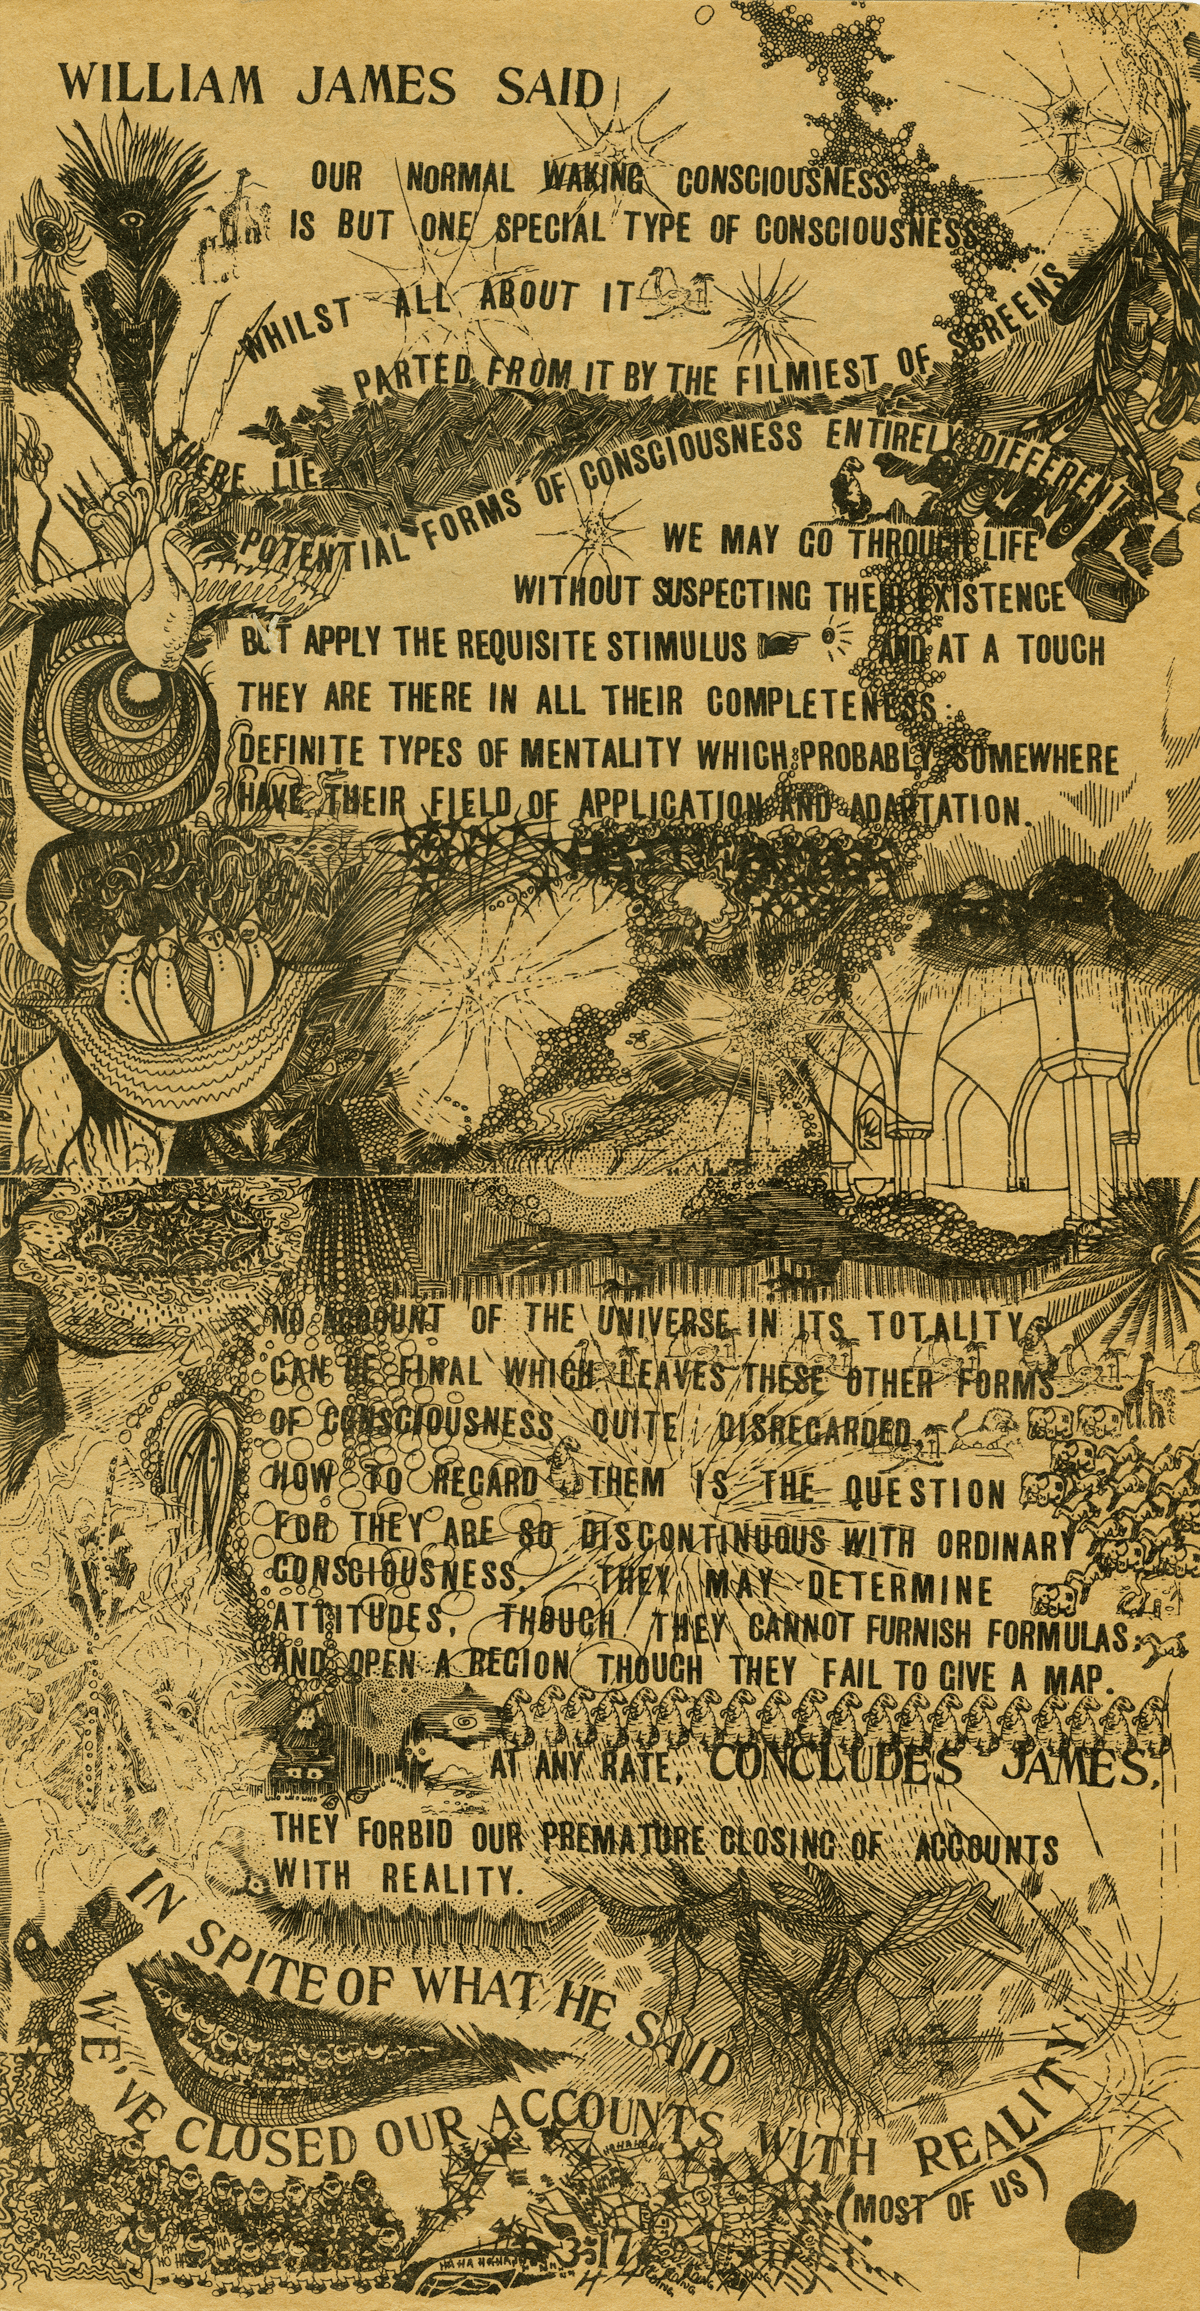 WILLIAM JAMES SAID
OUR NORMAL WAKING CONSCIOUSNESS
IS BUT ONE SPECIAL TYPE OF CONSCIOUSNESS
WHILST ALL ABOUT IT
PARTED FROM IT BY THE FILMIEST OF SCREENS
THERE LIE
POTENTIAL FORMS OF CONSCIOUSNESS ENTIRELY DIFFERENT
WE MAY GO THROUGH LIFE
WITHOUT SUSPECTING THEIR EXISTENCE
BUT APPLY THE REQUISITE STIMULUS AND AT A TOUCH
THEY ARE THERE IN ALL THEIR COMPLETENESS:
DEFINITE TYPES OF MENTALITY WHICH PROBABLY SOMEWHERE
HAVE THEIR FIELD OF APPLICATION AND ADAPTATION.
NO ACCOUNT OF THE UNIVERSE IN ITS TOTALITY
CAN BE FINAL WHICH LEAVES THESE OTHER FORMS
OF CONSCIOUSNESS QUITE DISREGARDED
HOW TO REGARD THEM IS THE QUESTION
FOR THEY ARE SO DISCONTINUOUS WITH ORDINARY
CONSCIOUSNESS. THEY MAY DETERMINE
ATTITUDES, THOUGH THEY CANNOT FURNISH FORMULAS;
AND OPEN A REGION THOUGH THEY FAIL TO GIVE A MAP.
AT ANY RATE, CONCLUDES JAMES,
THEY FORBID OUR PREMATURE CLOSING OF ACCOUNTS
WITH REALITY.
IN SPITE OF WHAT HE SAID
WE'VE CLOSED OUR ACCOUNTS WITH REALITY.
(MOST OF US)
HA HA HA HA